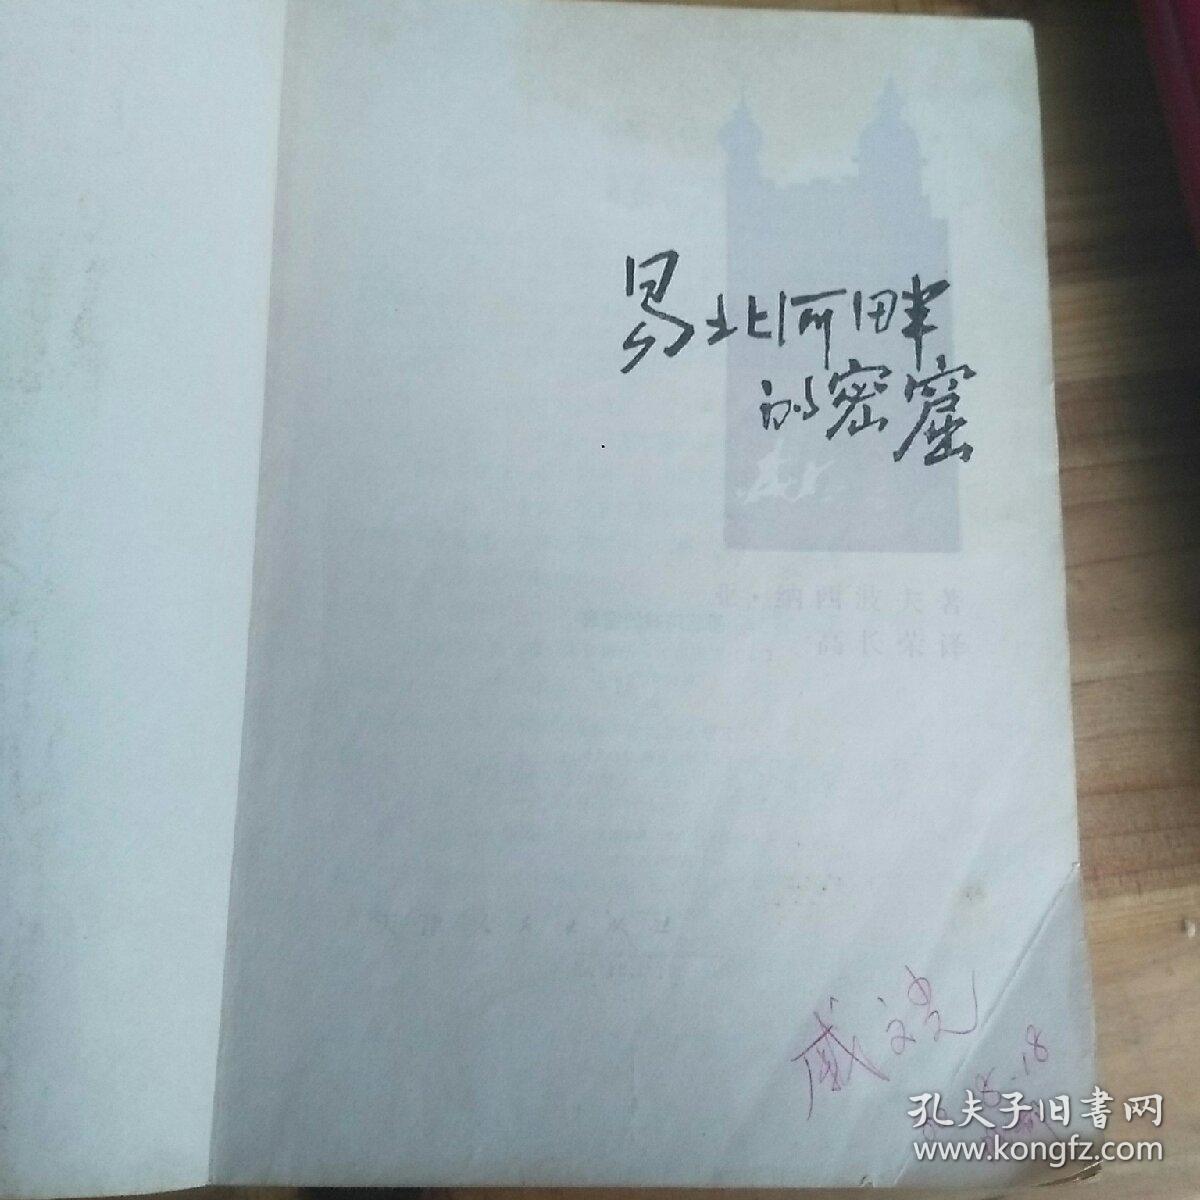 易北河畔
的密窟
亚·纳西波夫著
高长荣译
天津人民出版社
8-18
孔夫子旧书网
www.kongfz.com